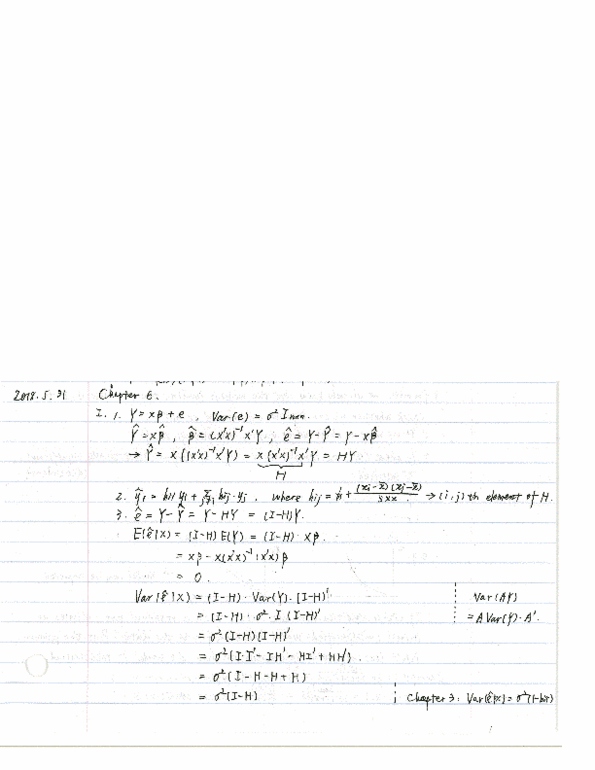 2018.5.31 Chapter 6.
I. 1. Y = xβ + e , Var(e) = σ² Inxn.
Ŷ = xβ̂ , β̂ = (x'x)⁻¹x'Y , ê = Y-Ŷ = Y-xβ̂
→ Ŷ = x((x'x)⁻¹x'Y) = x(x'x)⁻¹x'Y = HY
H
2. ŷi = hii yi + Σj≠i hij·yj , where hij = 1/n + (xi-x̄)(xj-x̄)/Sxx → (i,j)th element of H.
3. ê = Y-Ŷ = Y-HY = (I-H)Y.
E(ê|X) = (I-H)E(Y) = (I-H)·Xβ
= xβ - x(x'x)⁻¹(x'x)β
= 0.
Var(ê|X) = (I-H)·Var(Y)·(I-H)' Var(AY)
= (I-H)·σ²·I (I-H)' = A Var(Y)·A'.
= σ²(I-H)(I-H)'
= σ²(I·I' - IH' - HI' + HH')
= σ²(I-H-H+H)
= σ²(I-H) Chapter 3: Var(ê|x) = σ²(1-hii)